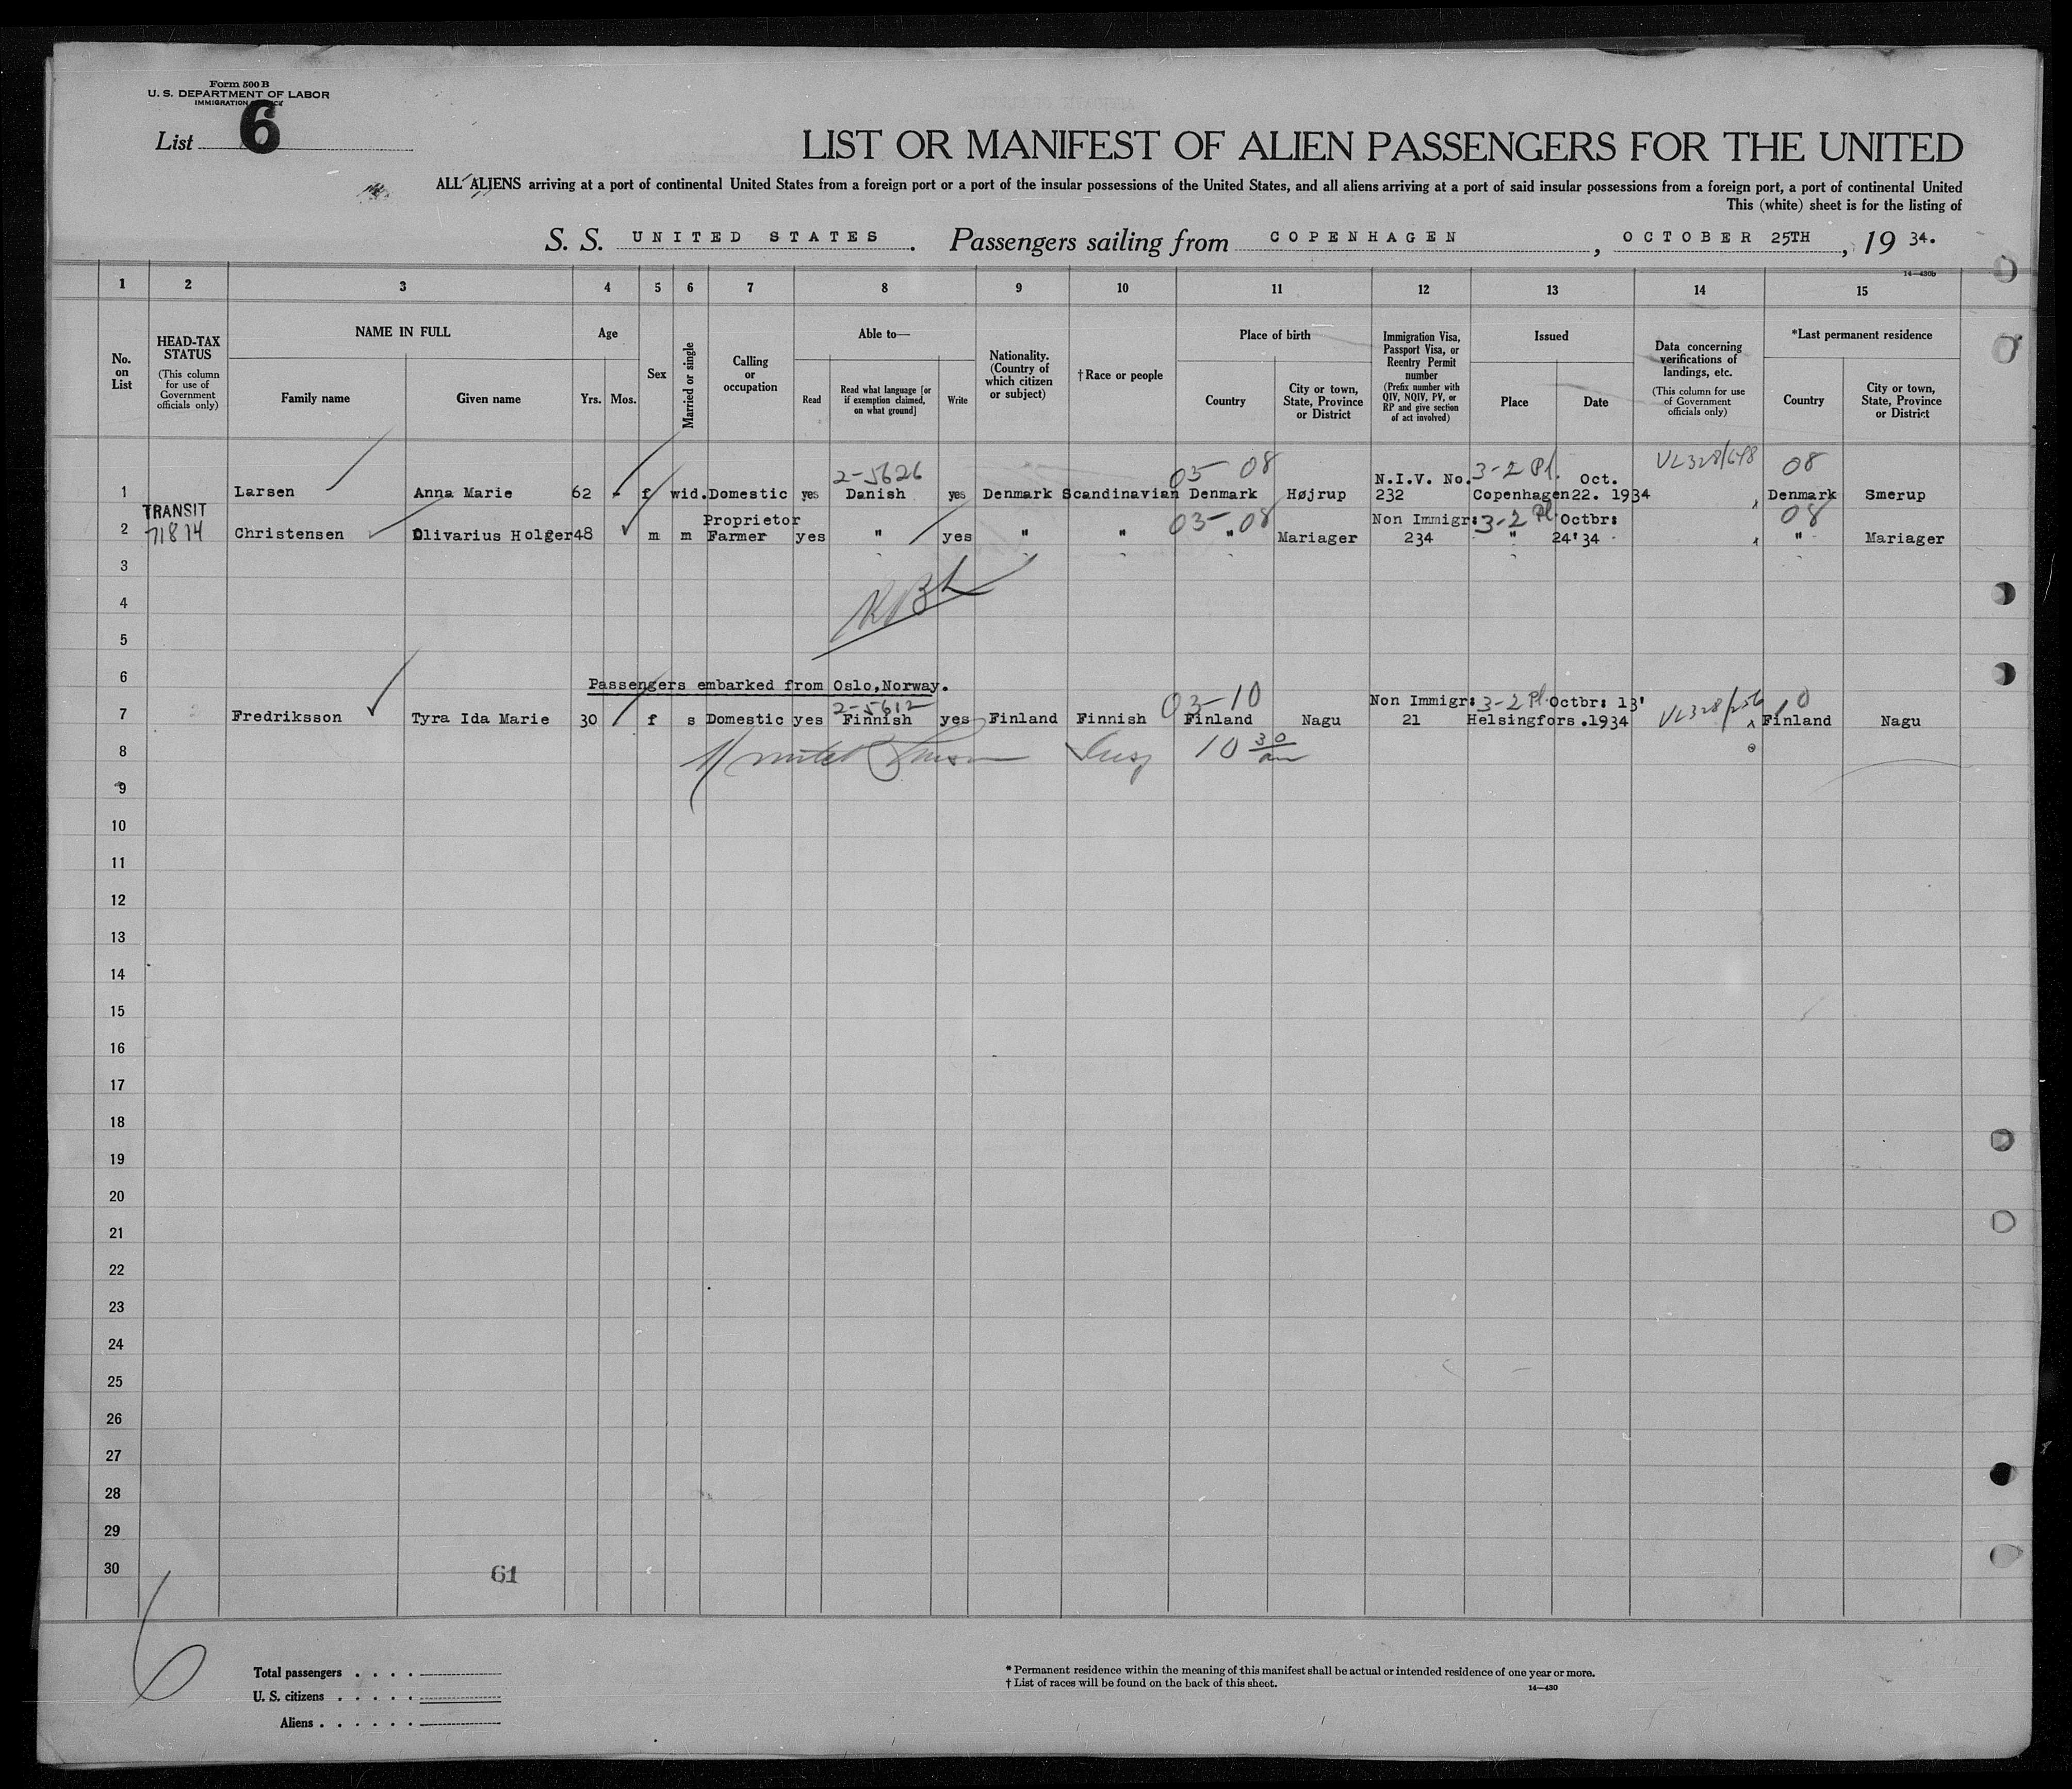 Form 500 B
U. S. DEPARTMENT OF LABOR
IMMIGRATION
List 6
LIST OR MANIFEST OF ALIEN PASSENGERS FOR THE UNITED
ALL ALIENS arriving at a port of continental United States from a foreign port or a port of the insular possessions of the United States, and all aliens arriving at a port of said insular possessions from a foreign port, a port of continental United
This (white) sheet is for the listing of
S. S. UNITED STATES. Passengers sailing from COPENHAGEN, OCTOBER 25TH, 19 34.
14—430b
1 2 3 4 5 6 7 8 9 10 11 12 13 14 15
No. on List
HEAD-TAX STATUS
(This column for use of Government officials only)
NAME IN FULL
Family name Given name
Age
Yrs. Mos.
Sex
Married or single
Calling or occupation
Able to—
Read
Read what language [or if exemption claimed, on what ground]
Write
Nationality. (Country of which citizen or subject)
†Race or people
Place of birth
Country
City or town, State, Province or District
Immigration Visa, Passport Visa, or Reentry Permit number
(Prefix number with QIV, NQIV, PV, or RP and give section of act involved)
Issued
Place Date
Data concerning verifications of landings, etc.
(This column for use of Government officials only)
*Last permanent residence
Country
City or town, State, Province or District
2-5626 03 08 N.I.V. No. 3-2 Pl. Oct. VL328/648 08
1 Larsen Anna Marie 62 - f wid. Domestic yes Danish yes Denmark Scandinavian Denmark Højrup 232 Copenhagen 22. 1934 Denmark Smerup
TRANSIT Proprietor 03-08 Non Immigr: 3-2 Pl Octbr: 08
2 71814 Christensen Olivarius Holger 48 m m Farmer yes " yes " " " Mariager 234 " 24'34 " Mariager
3
4
5
6 Passengers embarked from Oslo,Norway.
2-5612 03-10 Non Immigr: 3-2 Pl Octbr: 13' VL328/256 10
7 Fredriksson Tyra Ida Marie 30 f s Domestic yes Finnish yes Finland Finnish Finland Nagu 21 Helsingfors .1934 Finland Nagu
8 Insp 10 30 am
9
10
11
12
13
14
15
16
17
18
19
20
21
22
23
24
25
26
27
28
29
30
61
6
Total passengers . . . .
U. S. citizens . . . . .
Aliens . . . . . .
* Permanent residence within the meaning of this manifest shall be actual or intended residence of one year or more.
† List of races will be found on the back of this sheet.
14—430